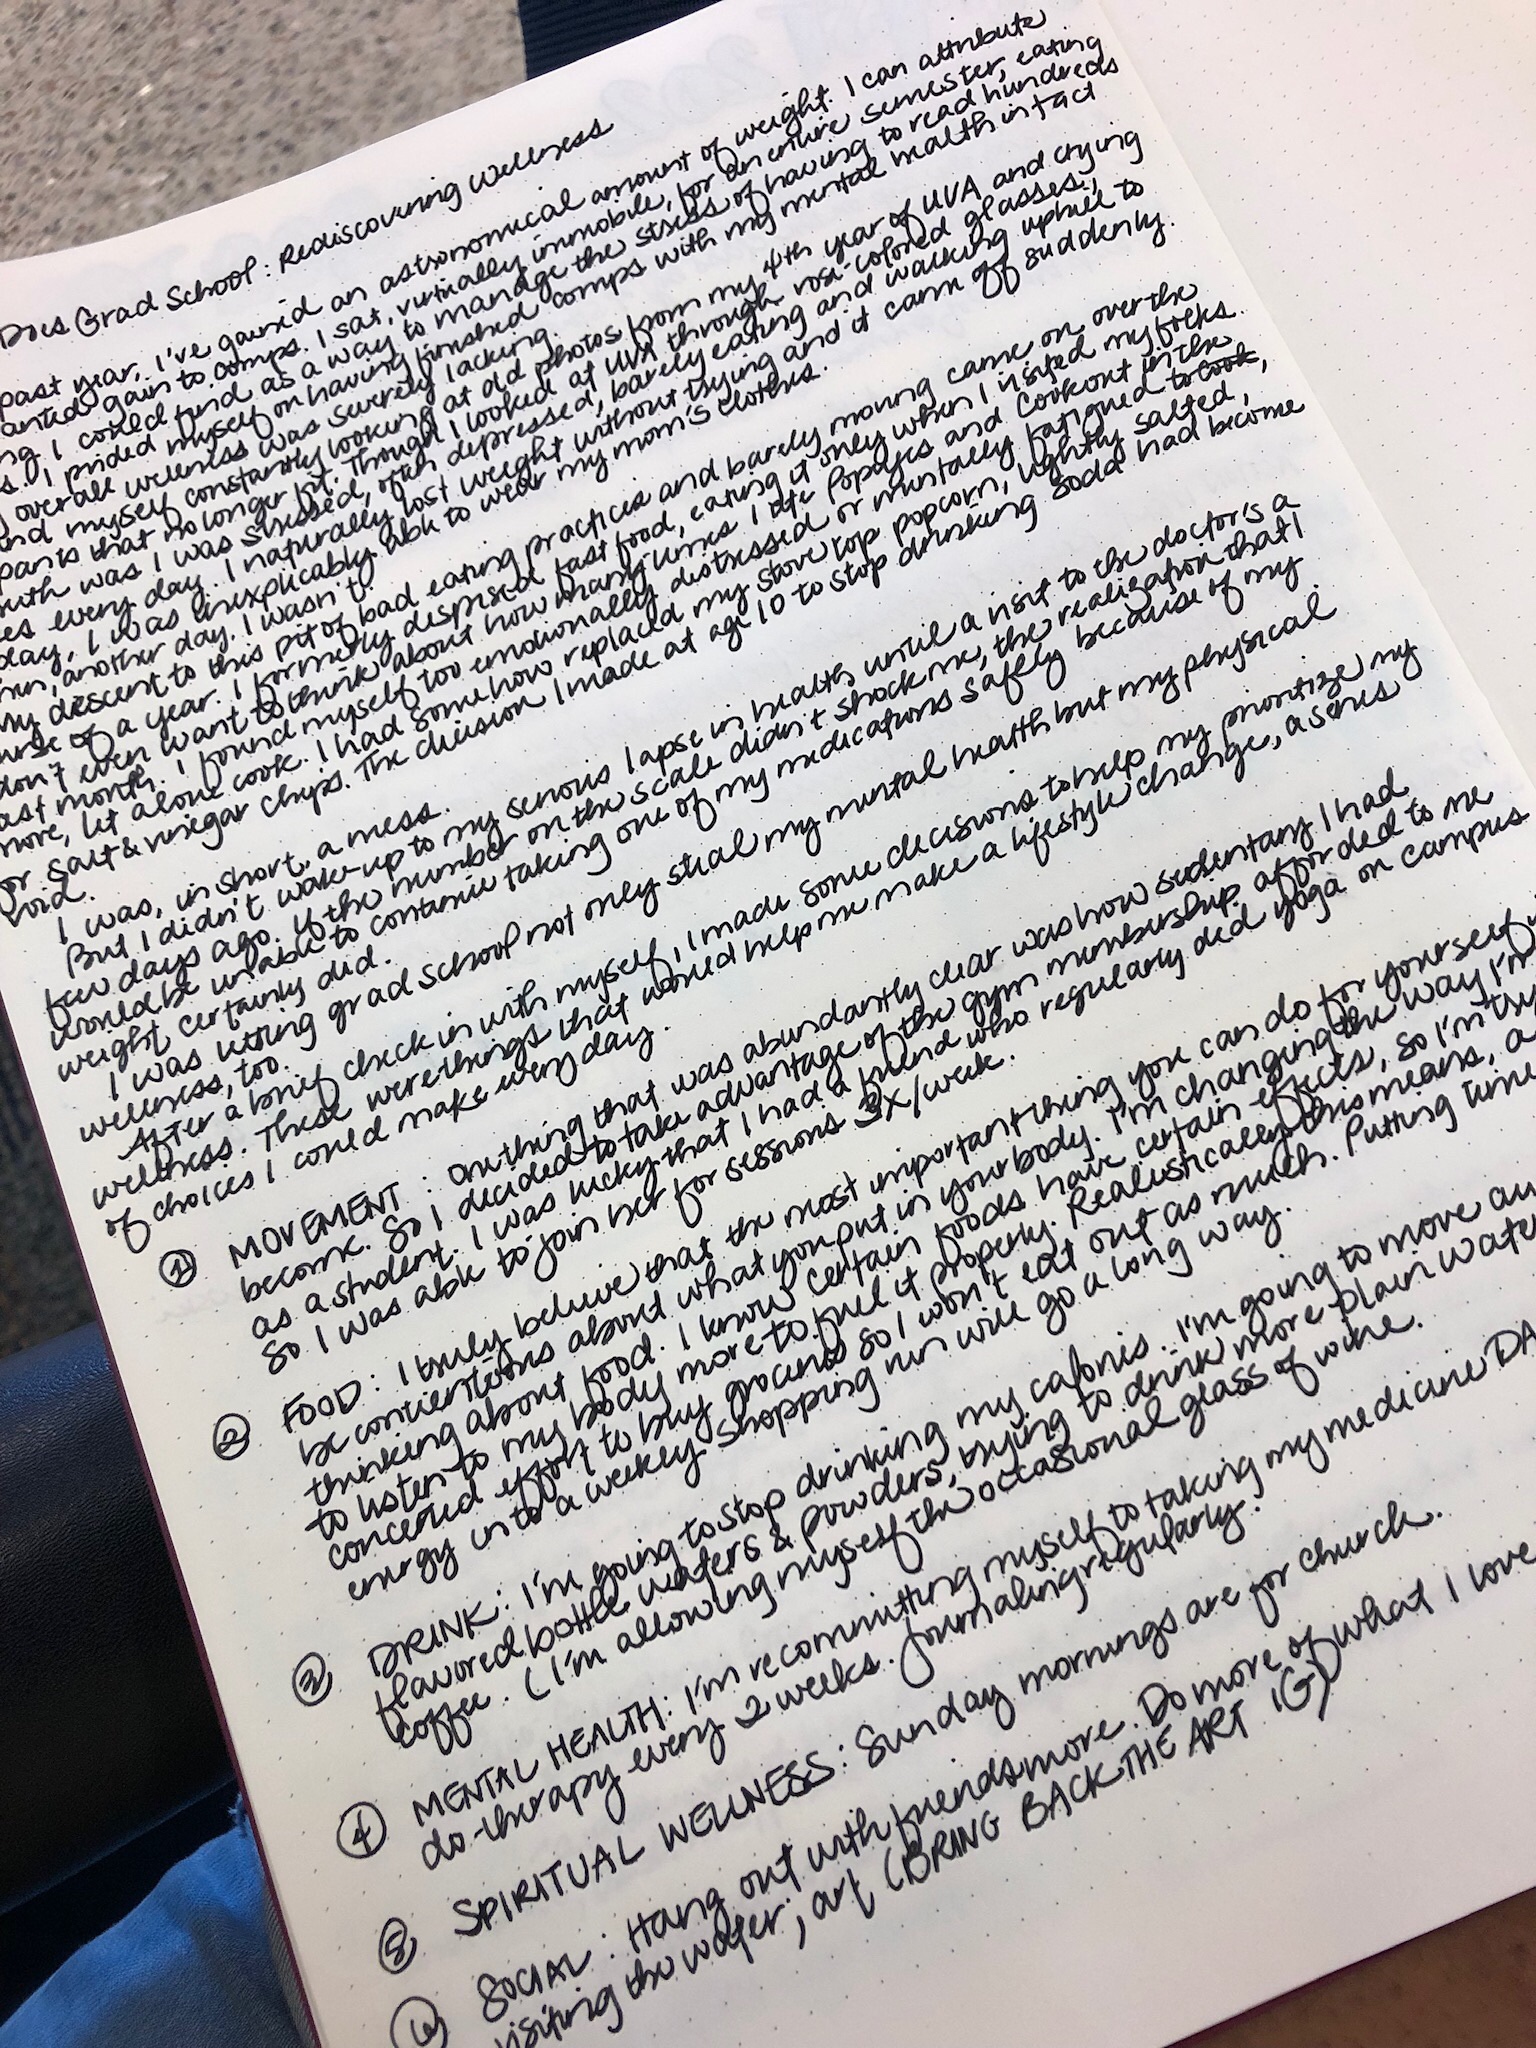 Does Grad School: Rediscovering Wellness
past year, I've gained an astronomical amount of weight. I can attribute
gain to comps. I sat, virtually immobile, for an entire semester, eating
I could find as a way to manage the stress of having to read hundreds
I prided myself on having finished comps with my mental health intact
overall wellness was severely lacking.
myself constantly looking at old photos from my 4th year of UVA and crying
pants that no longer fit. Though I looked at UVA through rose-colored glasses,
was I was stressed, often depressed, barely eating and walking uphill to
every day. I naturally lost weight without trying and it came off suddenly.
day, I was inexplicably able to wear my mom's clothes.
another day. I wasn't.
My descent to this pit of bad eating practices and barely moving came on over the
of a year. I formerly despised fast food, eating it only when I visited my folks.
don't even want to think about how many times I ate Popeyes and Cookout in the
month. I found myself too emotionally distressed or mentally fatigued to cook,
more, let alone cook. I had somehow replaced my stove top popcorn, lightly salted,
for salt & vinegar chips. The decision I made at age 10 to stop drinking soda had become
void.
I was, in short, a mess.
But I didn't wake-up to my serious lapse in health until a visit to the doctor's a
few days ago. If the number on the scale didn't shock me, the realization that I
would be unable to continue taking one of my medications safely because of my
weight certainly did.
I was letting grad school not only steal my mental health but my physical
wellness, too.
After a brief check in with myself, I made some decisions to help my prioritize my
wellness. These were things that would help me make a lifestyle change, a series
of choices I could make every day.
① MOVEMENT: One thing that was abundantly clear was how sedentary I had
become. So I decided to take advantage of the gym membership afforded to me
as a student. I was lucky that I had a friend who regularly did yoga on campus
so I was able to join her for sessions 3x/week.
② FOOD: I truly believe that the most important thing you can do for yourself
be conscientious about what you put in your body. I'm changing the way I'm
thinking about food. I know certain foods have certain effects, so I'm
to listen to my body more to fuel it properly. Realistically, this means, a
concerted effort to buy groceries so I won't eat out as much. Putting time
energy into a weekly shopping run will go a long way.
③ DRINK: I'm going to stop drinking my calories. I'm going to move
flavored bottle waters & powders, trying to drink more plain
coffee. (I'm allowing myself the occasional glass of wine.
④ MENTAL HEALTH: I'm recommitting myself to taking my medicine
do therapy every 2 weeks. Journaling regularly.
⑤ SPIRITUAL WELLNESS: Sunday mornings are for church.
⑥ SOCIAL: Hang out with friends more. Do more of what I love
visiting the water, art (BRING BACK THE ART IG)